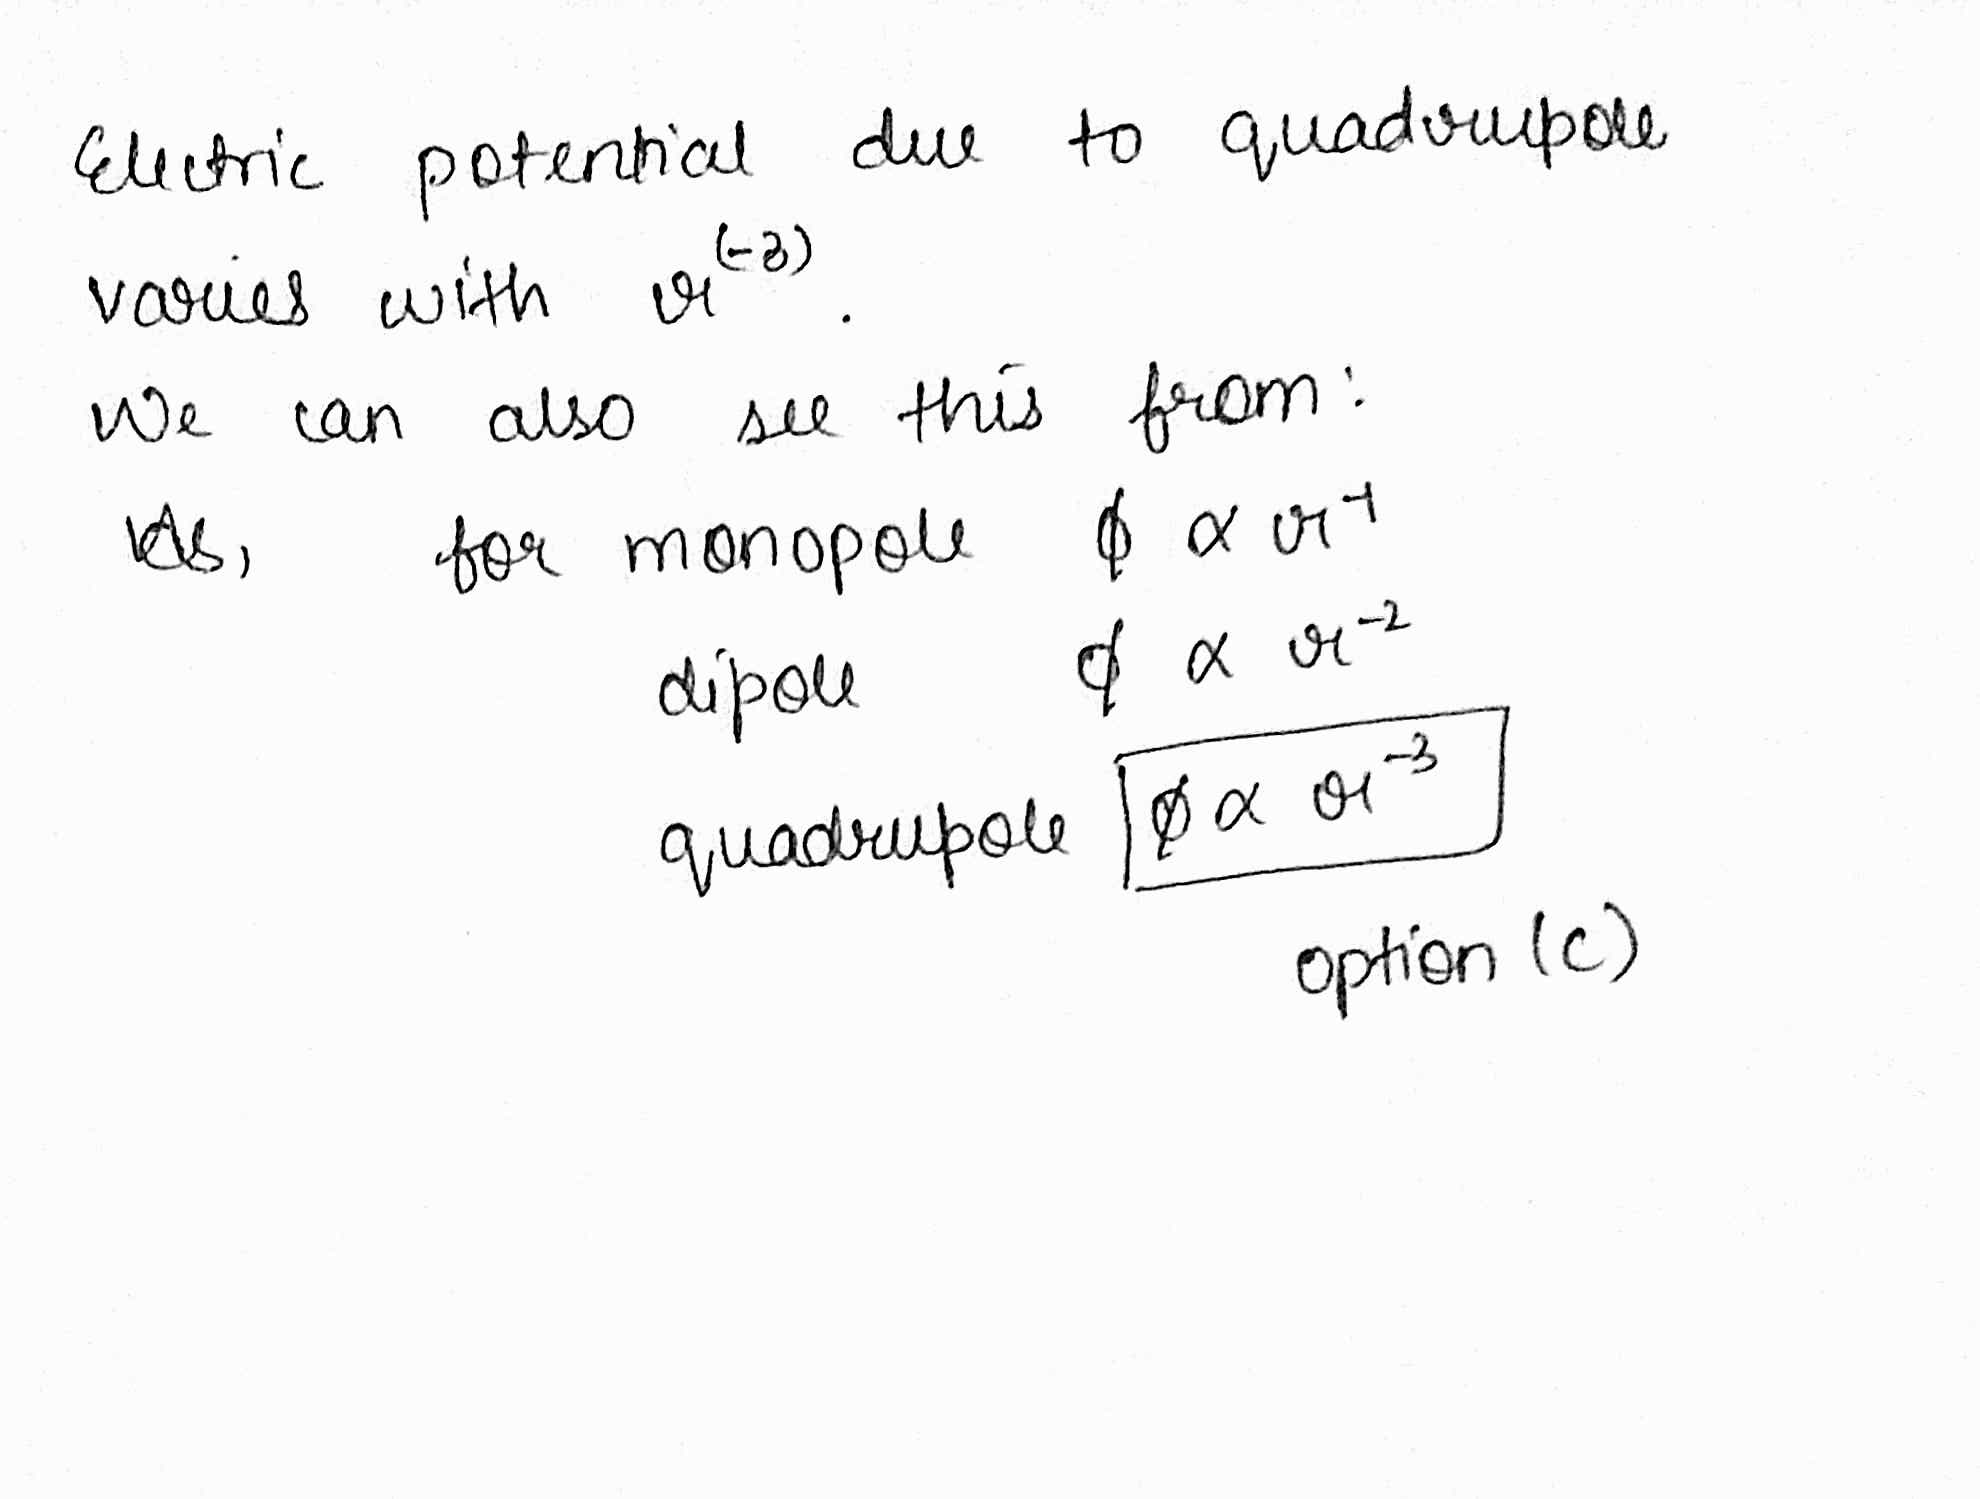 Electric potential due to quadrupole
varies with r^(-3).
We can also see this from:
As, for monopole ϕ ∝ r^-1
dipole ϕ ∝ r^-2
quadrupole ϕ ∝ r^-3
option (c)